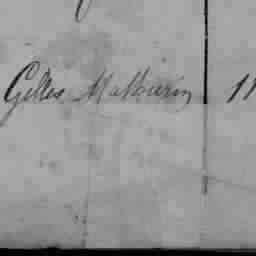 Gilles Mathurin 11